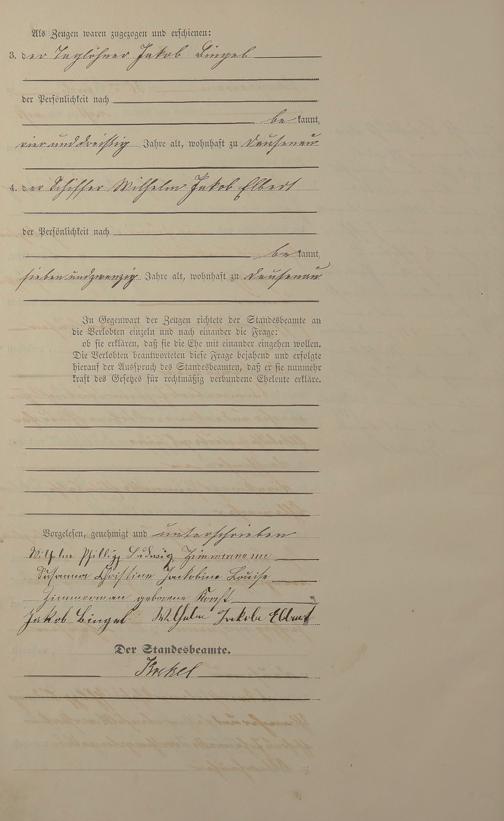 Als Zeugen waren zugezogen und erschienen:
3. der Taglöhner Jakob Bingel
der Persönlichkeit nach
be kannt,
vierunddreißig Jahre alt, wohnhaft zu Dausenau
4. der Schiffer Wilhelm Jakob Elbert
der Persönlichkeit nach
be kannt,
siebenundzwanzig Jahre alt, wohnhaft zu Dausenau
In Gegenwart der Zeugen richtete der Standesbeamte an
die Verlobten einzeln und nach einander die Frage:
ob sie erklären, daß sie die Ehe mit einander eingehen wollen.
Die Verlobten beantworteten diese Frage bejahend und erfolgte
hierauf der Ausspruch des Standesbeamten, daß er sie nunmehr
kraft des Gesetzes für rechtmäßig verbundene Eheleute erkläre.
Vorgelesen, genehmigt und unterschrieben
Wilhelm Phillip Ludwig Zimmermann
Susanna Christine Jackobine Louise
Zimmerman geborene
Jakob Bingel Wilhelm Jakob Elbert
Der Standesbeamte.